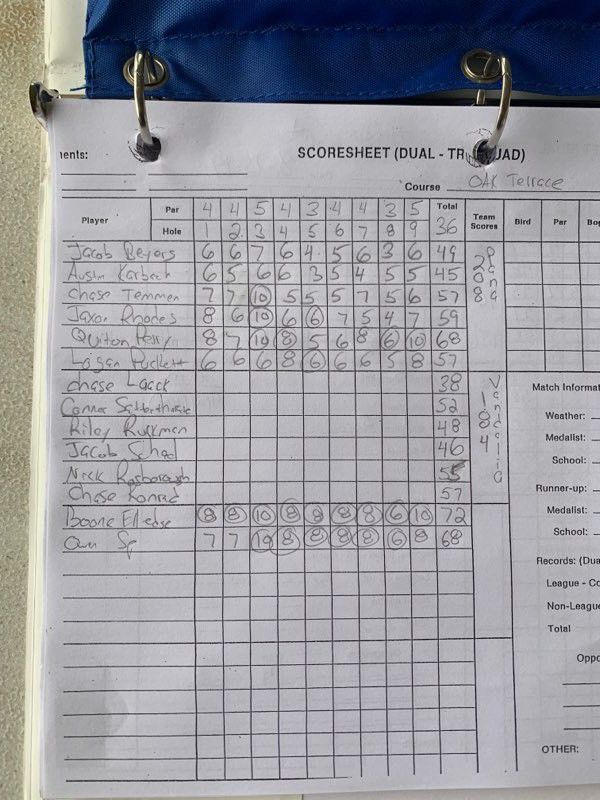 ents:
SCORESHEET (DUAL - TRI QUAD)
Course OAK Terrace
Player Par 4 4 5 4 3 4 4 3 5 Total Team Scores Bird Par Bog
Hole 1 2 3 4 5 6 7 8 9 36
Jacob Beyers 6 6 7 6 4 5 6 3 6 49
Austin Karbach 6 5 6 6 3 5 4 5 5 45
Chase Temmen 7 7 10 5 5 5 7 5 6 57
Jaxon Rhodes 8 6 10 6 6 7 5 4 7 59
Quiton Perry 8 7 10 8 5 6 8 6 10 68
Logan Puckett 6 6 6 8 6 6 6 5 8 57
208 Pana
Chase Laack 38
Connor Satterthwaite 52
Riley Ruckman 48
Jacob School 46
Nick Rosborough 55
Chase Konrad 57
184 Vandalia
Boone Elledge 8 8 10 8 8 8 6 10 72
Owen 7 7 10 8 8 8 8 6 68
Match Informat
Weather:
Medalist:
School:
Runner-up:
Medalist:
School:
Records: (Dua
League - Co
Non-League
Total
Oppo
OTHER: